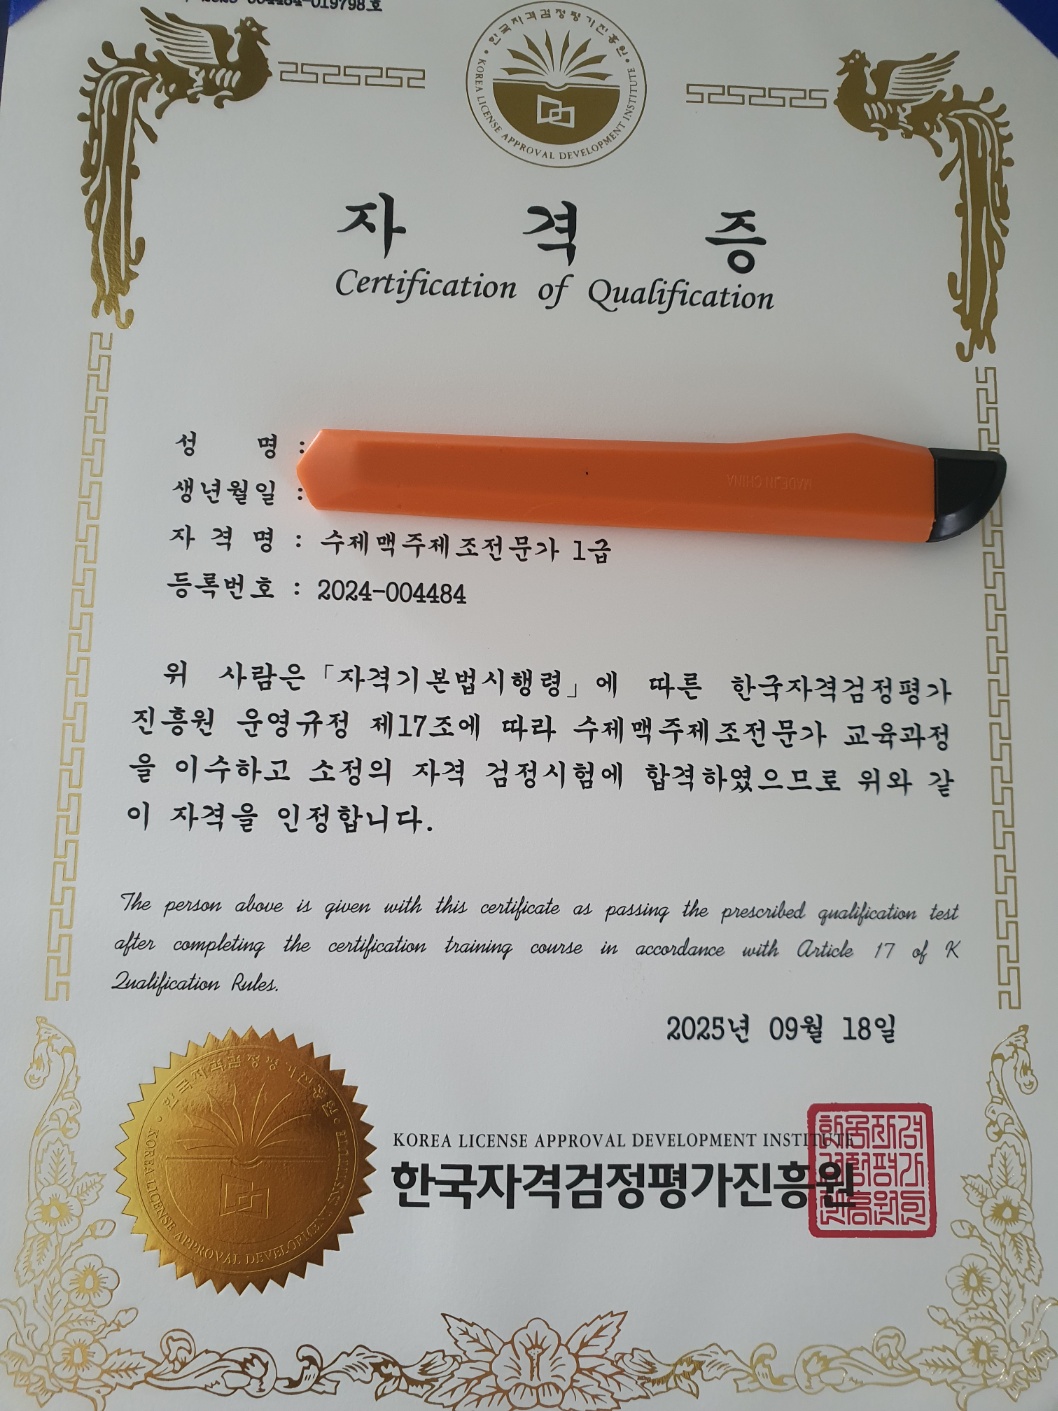 2025-004484-019798호
한국자격검정평가진흥원
KOREA LICENSE APPROVAL DEVELOPMENT INSTITUTE
자 격 증
Certification of Qualification
성 명 :
생년월일 :
MADE IN CHINA
자 격 명 : 수제맥주제조전문가 1급
등록번호 : 2024-004484
위 사람은 「자격기본법시행령」에 따른 한국자격검정평가
진흥원 운영규정 제17조에 따라 수제맥주제조전문가 교육과정
을 이수하고 소정의 자격 검정시험에 합격하였으므로 위와 같
이 자격을 인정합니다.
The person above is given with this certificate as passing the prescribed qualification test
after completing the certification training course in accordance with Article 17 of K
Qualification Rules.
2025년 09월 18일
한국자격검정평가진흥원
KOREA LICENSE APPROVAL DEVELOPMENT INSTITUTE
KOREA LICENSE APPROVAL DEVELOPMENT INSTITUTE
한국자격검정평가진흥원